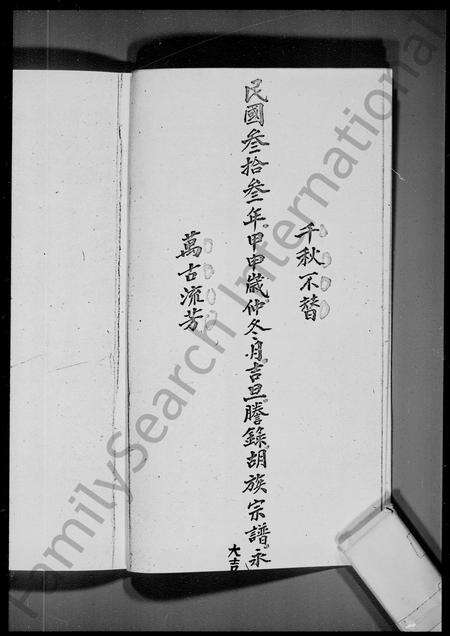 千秋不替
民國叁拾叁年甲申歲仲冬月吉旦謄錄胡族宗譜永
大吉
萬古流芳
FamilySearch International